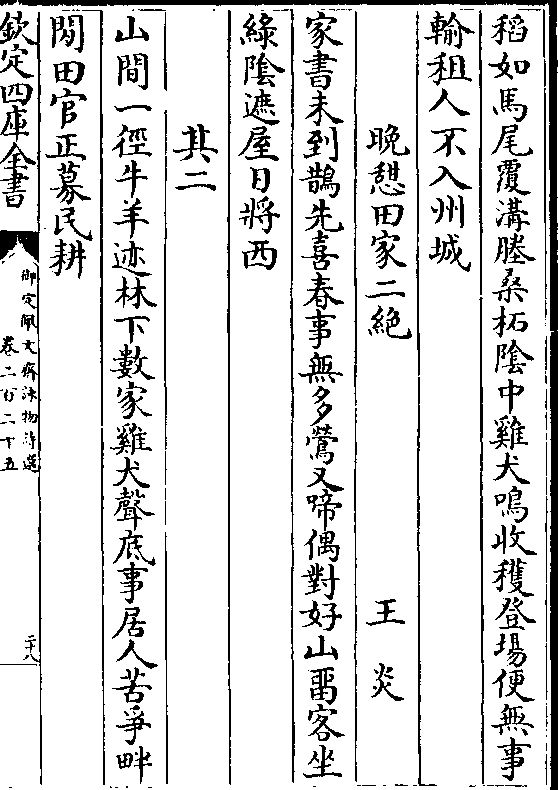 稻如馬尾覆溝塍桑柘陰中雞犬鳴收穫登場便無事
輸租人不入州城
晚憇田家二絶　王炎
家書未到鵲先喜春事無多鶯又啼偶對好山畱客坐
綠陰遮屋日將西
其二
山間一徑牛羊迹林下數家雞犬聲底事居人苦爭畔
閒田官正募民耕
欽定四庫全書
御定佩文齋詠物詩選
卷二百二十五
二十八